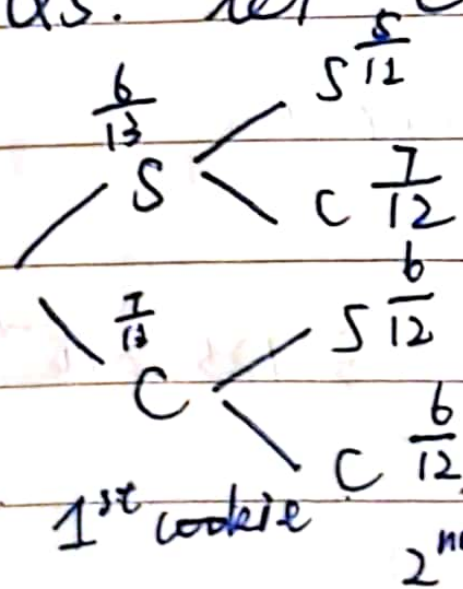 6/13
S
S 5/12
C 7/12
7/13
C
S 6/12
C 6/12
1st cookie